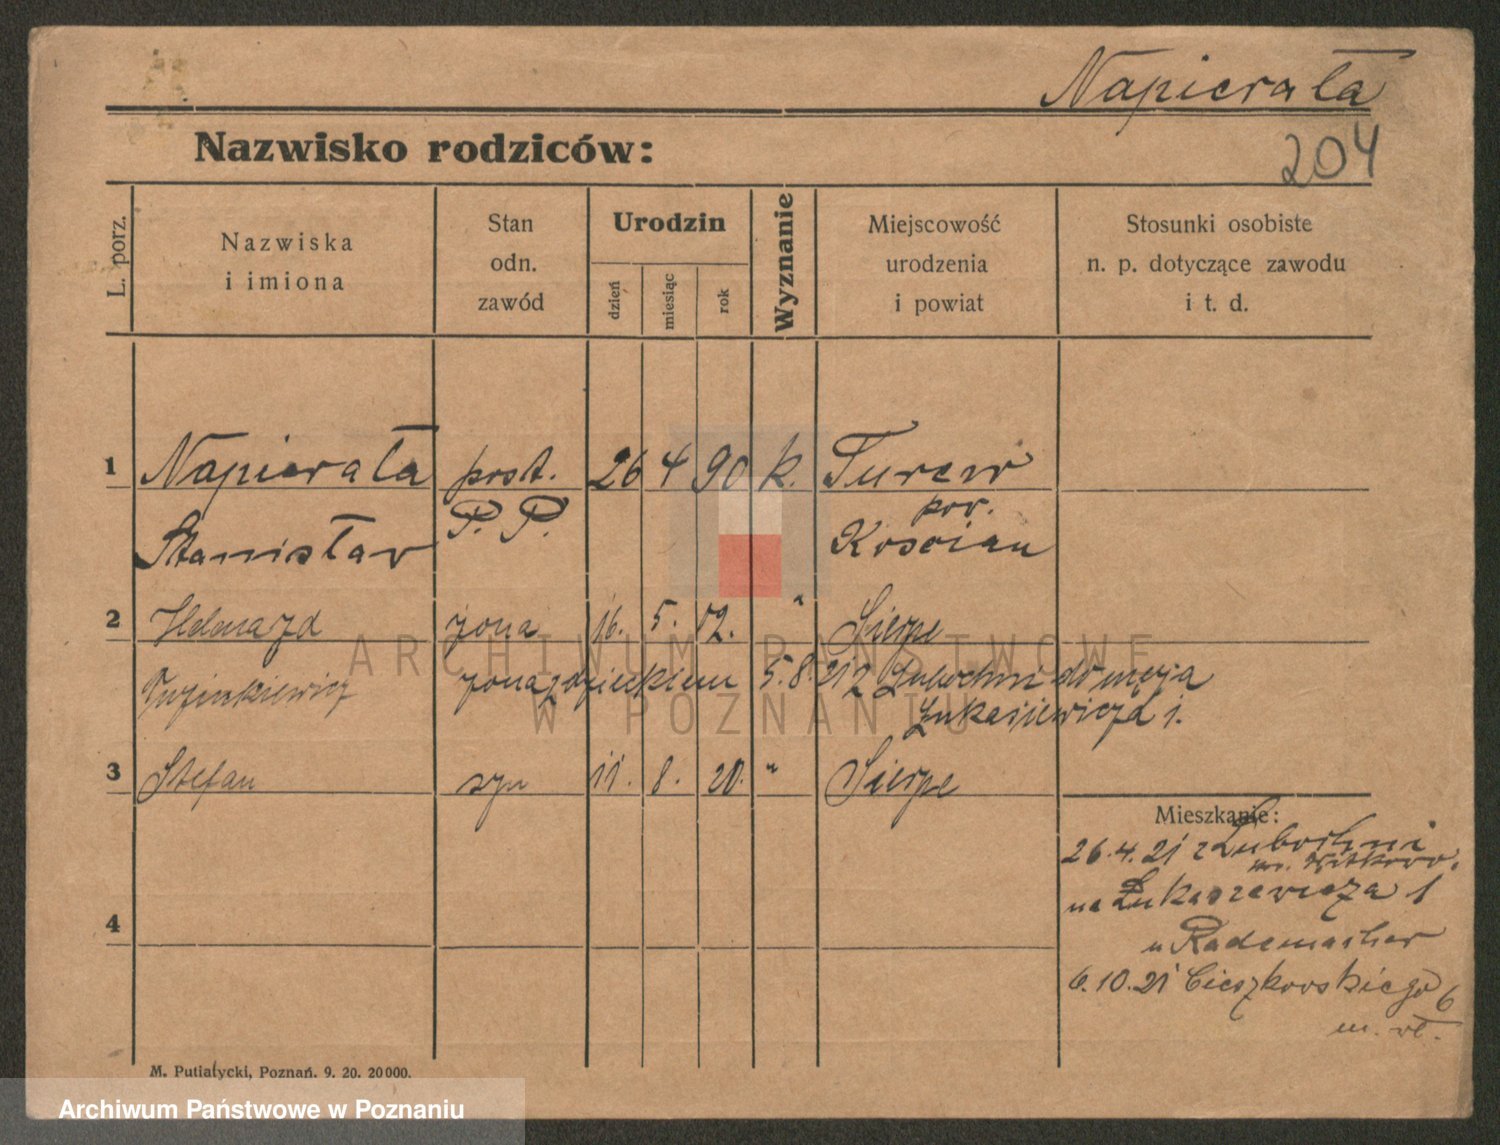 Napierała
204
Nazwisko rodziców:
L. porz.
Nazwiska
i imiona
Stan
odn.
zawód
Urodzin
dzień
miesiąc
rok
Wyznanie
Miejscowość
urodzenia
i powiat
Stosunki osobiste
n. p. dotyczące zawodu
i t. d.
1 Napierała post. 26 4 90 k. Turew
pow.
Stanisław P. P. Kościan
2 Helena zd żona 16. 5. " Sierpc
żona z dzieckiem 5.8.21 z Lubochni do męża
Łukasiewicza 1.
3 Stefan syn 11. 8. 20. " Sierpc
Mieszkanie:
26.4.21 z Lubochni
Witkowo.
na Łukaszewicza 1
u Rademacher
4
6.10.21 Cieszkowskiego 6
m. wł.
M. Putiatycki, Poznań. 9. 20. 20000.
ARCHIWUM PAŃSTWOWE
W POZNANIU
Archiwum Państwowe w Poznaniu